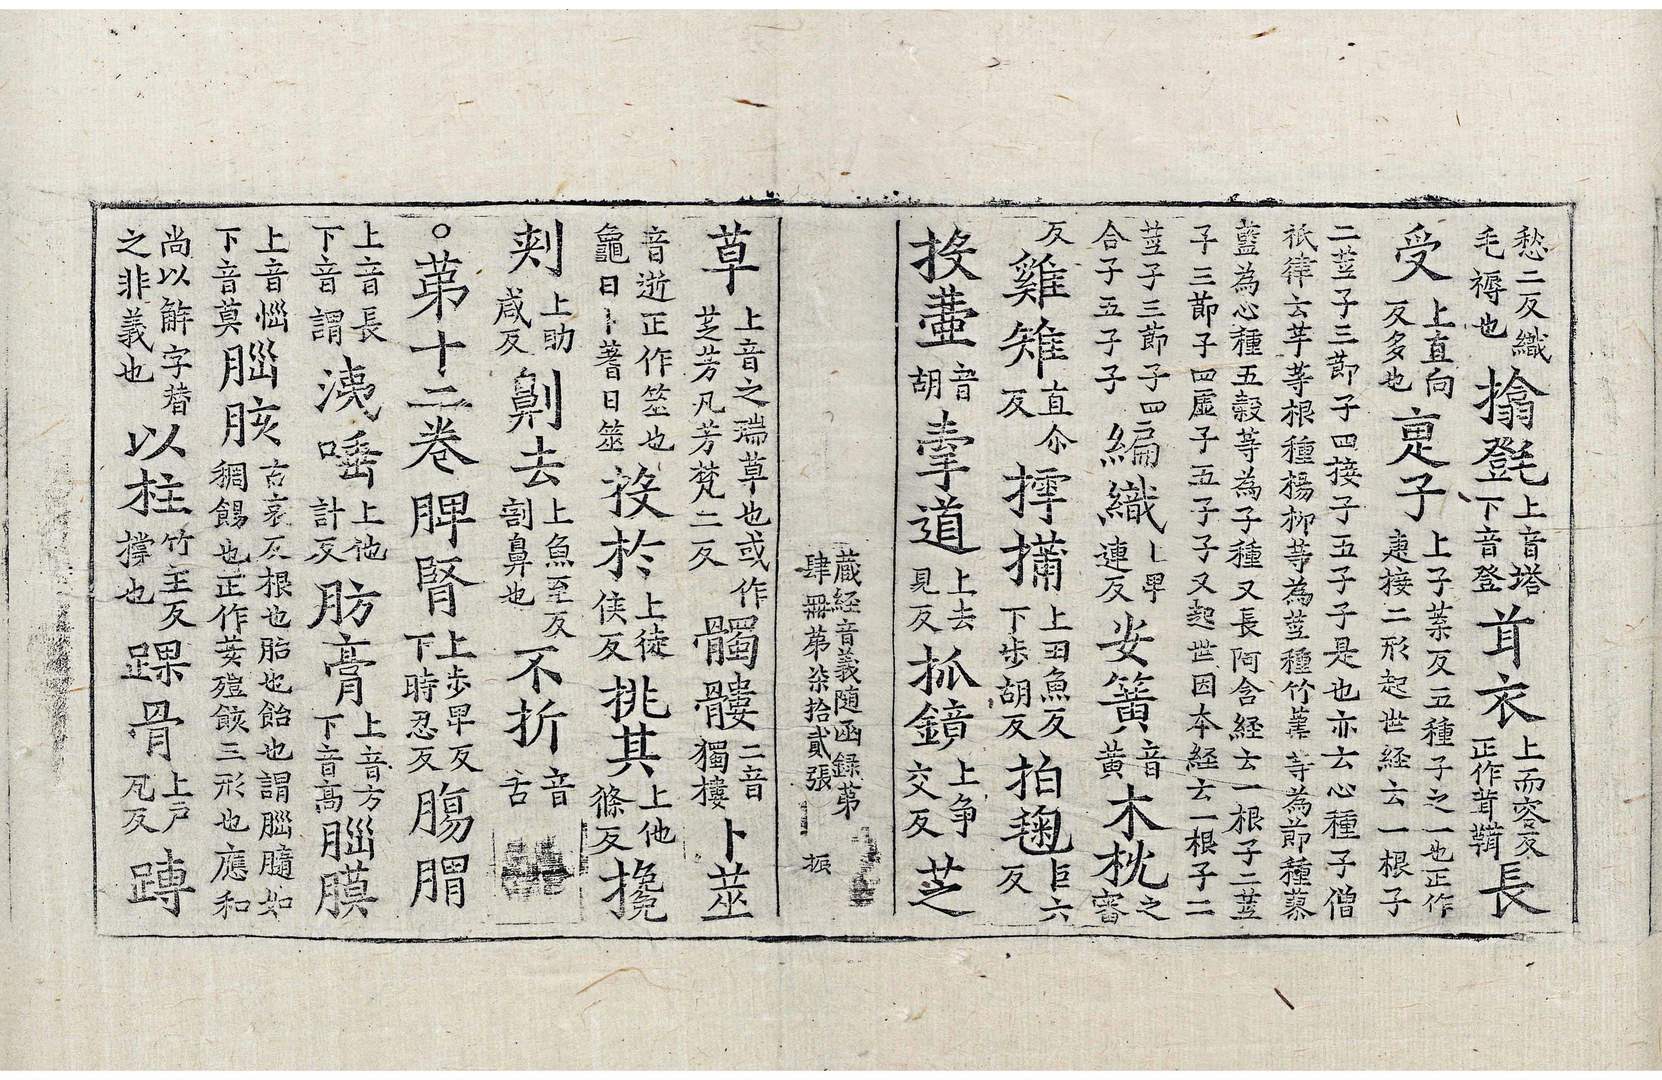 愁二反織毛褥也㩉㲪上音塔下音登茸衣上而容反正作茸鞾長
受上直向反多也䆁子上子葉反五種子之一也正作㨗接二形起世經去一根子
二莖子三節子四接子五子子是也亦去心種子僧
祇律云芋等根種楊柳等為莖種竹葦等為節種蓼
藍為心種五穀等為子種又長阿含経去一根子二莖
子三節子四虛子五子子又起世因本経去一根子二
莖子三節子四合子五子子編織上卑連反安簧音黄木枕之審
反雞雉直尒反摴蒱上丑魚反下步胡反拍毱巨六反
投壷音胡牽道上去見反抓鏡上争交反芝
藏経音義随函録第肆冊第柒拾貳張 振
草上音之瑞草也或作芝芳凡芳梵二反髑髏二音獨樓卜莁
音逝正作筮也龜曰卜蓍曰筮投於上徒侯反挑其上他條反攙
刾上助咸反劓去上魚至反割鼻也不折音舌
○第十二卷脾腎上步卑反下時忍反腸胃
上音長下音謂洟唾上他計反肪膏上音方下音高腦膜
上音惱下音莫腦胲古哀反根也胎也飴也謂腦髓如稠餳也正作荄殪䬵三形也應和
尚以解字替之非義也以柱竹主反撐也踝骨上户瓦反𨄔